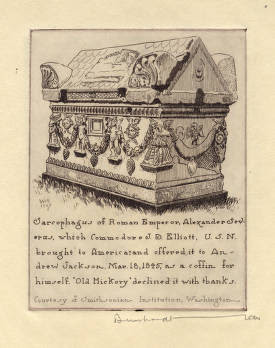 Sarcophagus of Roman Emperor, Alexander Sev-
erus, which Commodore J. D. Elliott, U.S.N.
brought to America and offered it to An-
drew Jackson, Mar. 18, 1845, as a coffin for
himself. "Old Hickory" declined it with thanks.
Courtesy of Smithsonian Institution, Washington